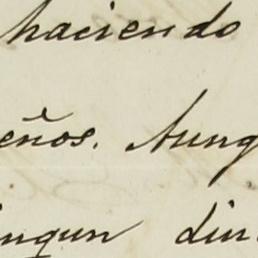 haciendo
eños. Aunq
ingun din